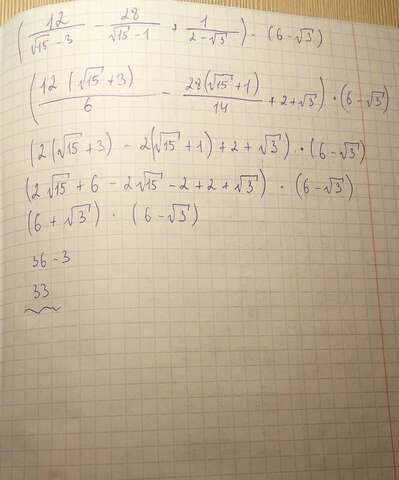 (12/(√15 − 3) − 28/(√15 − 1) + 1/(2 − √3)) · (6 − √3)
(12(√15 + 3)/6 − 28(√15 + 1)/14 + 2 + √3) · (6 − √3)
(2(√15 + 3) − 2(√15 + 1) + 2 + √3) · (6 − √3)
(2√15 + 6 − 2√15 − 2 + 2 + √3) · (6 − √3)
(6 + √3) · (6 − √3)
36 - 3
33